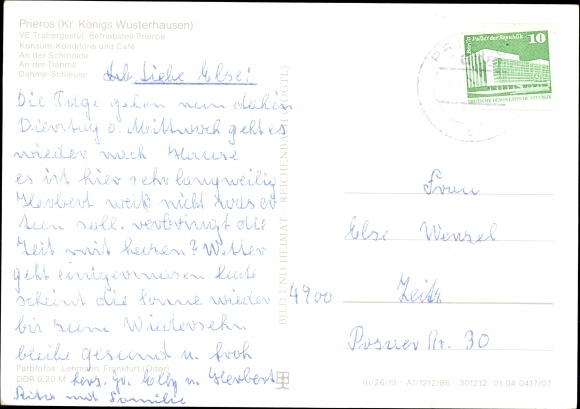 Prieros (Kr. Königs Wusterhausen)
VE Trabergestüt, Betriebsteil Prieros
Konsum-Konditorei und Café
An der Schmölde
An der Dahme
Dahme-Schleuse
Liebe Else!
Die Tage gehen nun dahin
Dienstag o. Mittwoch geht es
wieder nach Hause
es ist hier sehr langweilig
Herbert weiß nicht was er
tun soll. verbringt die
Zeit mit heizen? Wetter
geht einigermasen heute
scheint die Sonne wieder
bis zum Wiedersehn
bleibe gesund u. froh
herz. Gr. Elly u. Herbert
Rita mit Familie
Farbfotos: Lehmann, Frankfurt (Oder)
DDR 0,20 M
BILD UND HEIMAT REICHENBACH (VOGTL)
Palast der Republik
10
DEUTSCHE DEMOKRATISCHE REPUBLIK
Frau
Else Wenzel
4900 Zeitz
Posaer Str. 30
III/26/13 · A1/1212/86 · 301212 01 04 0417/07